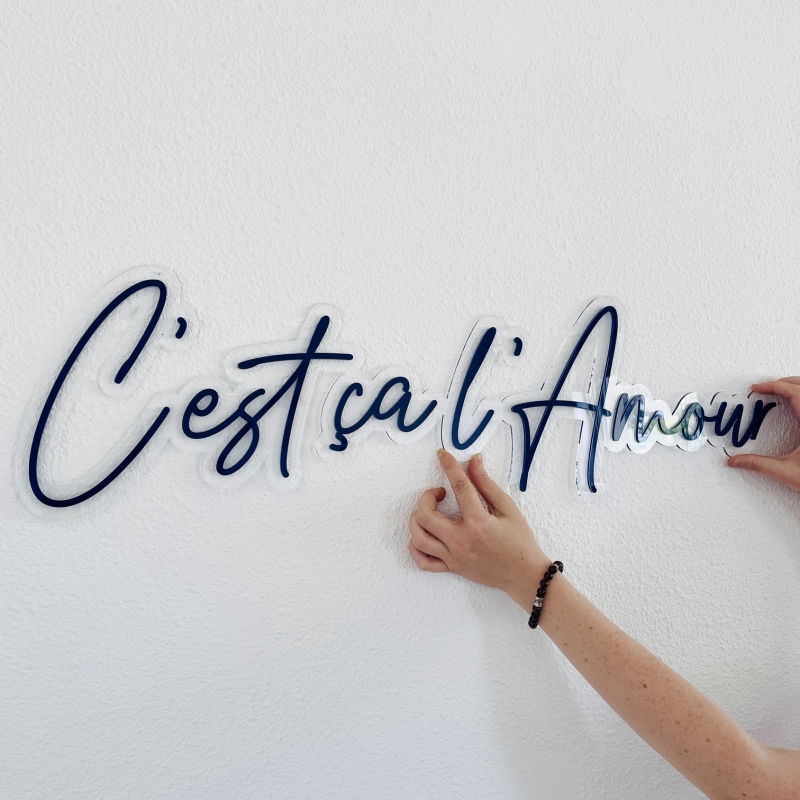 C'est ça l'Amour